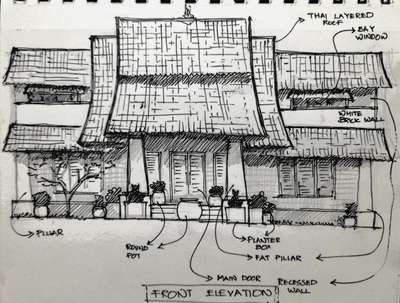 THAI LAYERED
ROOF
BAY
WINDOW
WHITE
BRICK WALL
PILLAR
ROUND
POT
PLANTER
BOX
FAT PILLAR
MAIN DOOR
RECESSED
WALL
FRONT ELEVATION